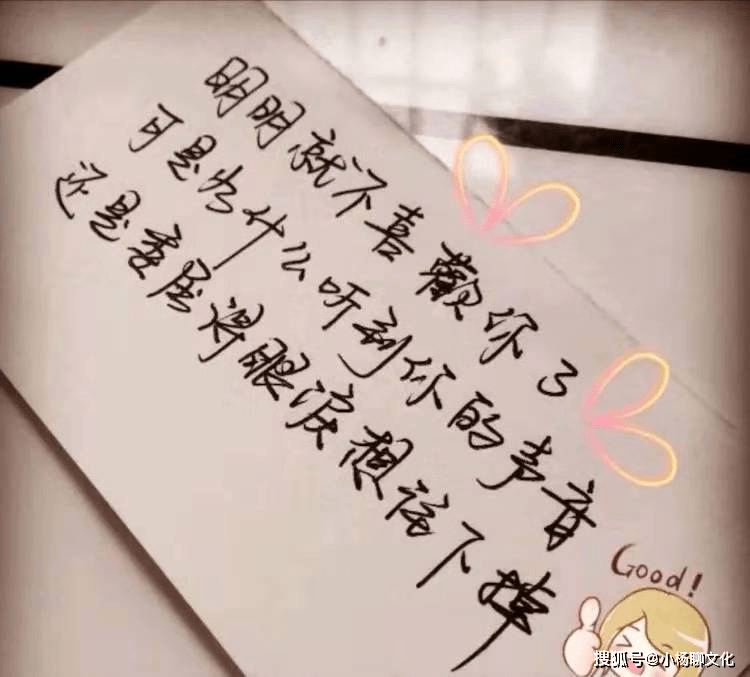 明明就不喜歡你了
可是为什么听到你的声音
还是委屈得眼淚想往下掉
Good!
搜狐号@小杨聊文化